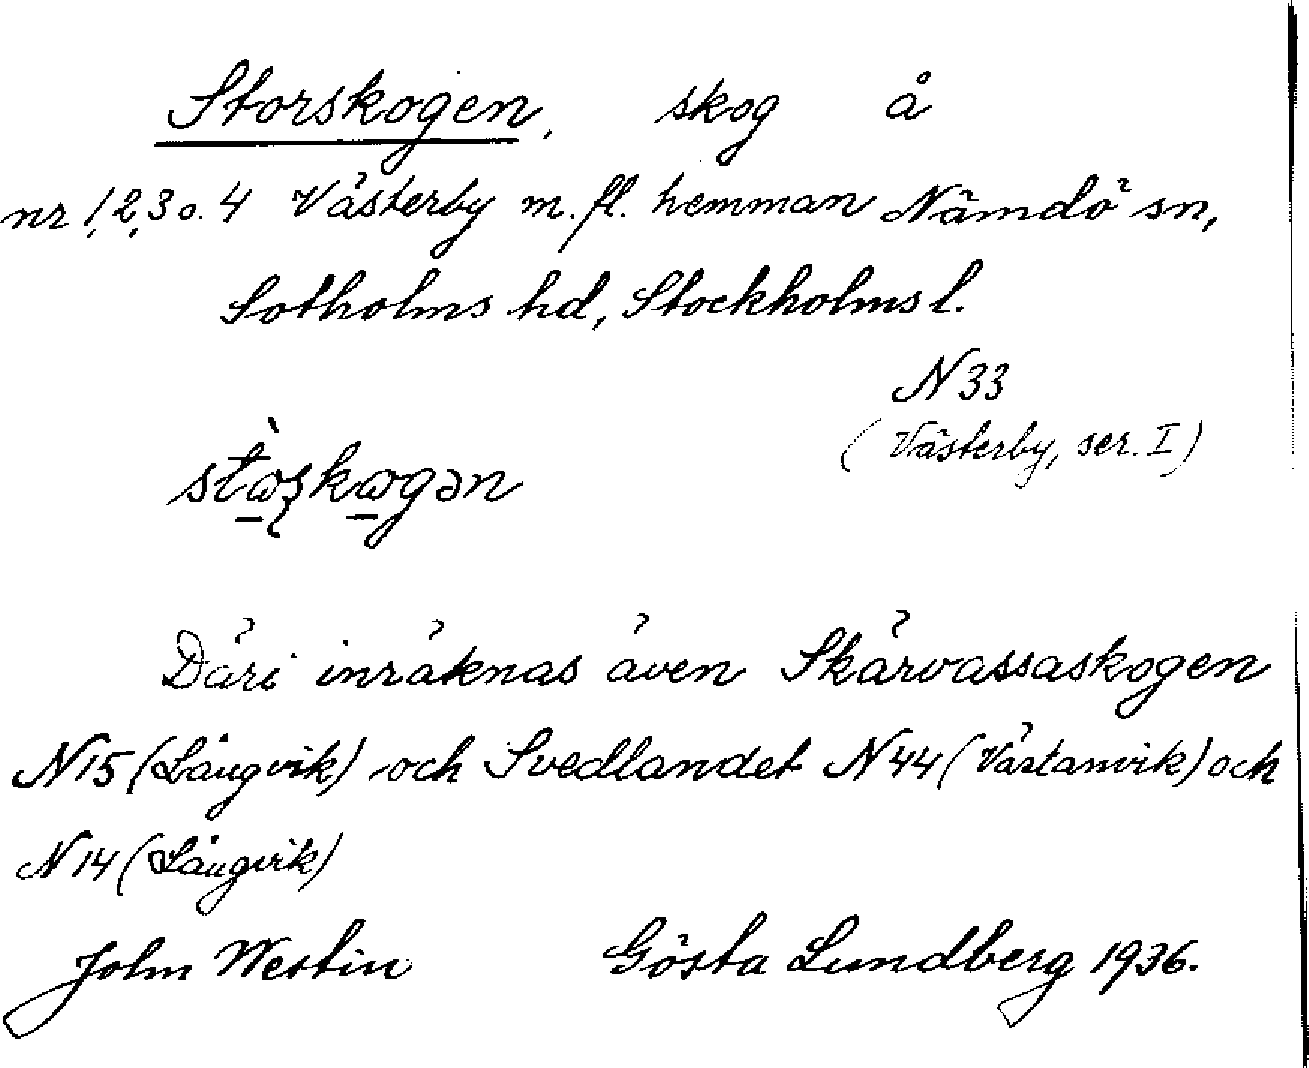 Storskogen, skog å
nr 1, 2, 3 o. 4 Västerby m. fl. hemman Nämdö sn,
Sotholms hd, Stockholms l.
N 33
(Västerby, ser. I)
Däri inräknas även Skärvassaskogen
N 15 (Långvik) och Svedlandet N 44 (Västanvik) och
N 14 (Långvik)
John Westin Gösta Lundberg 1936.